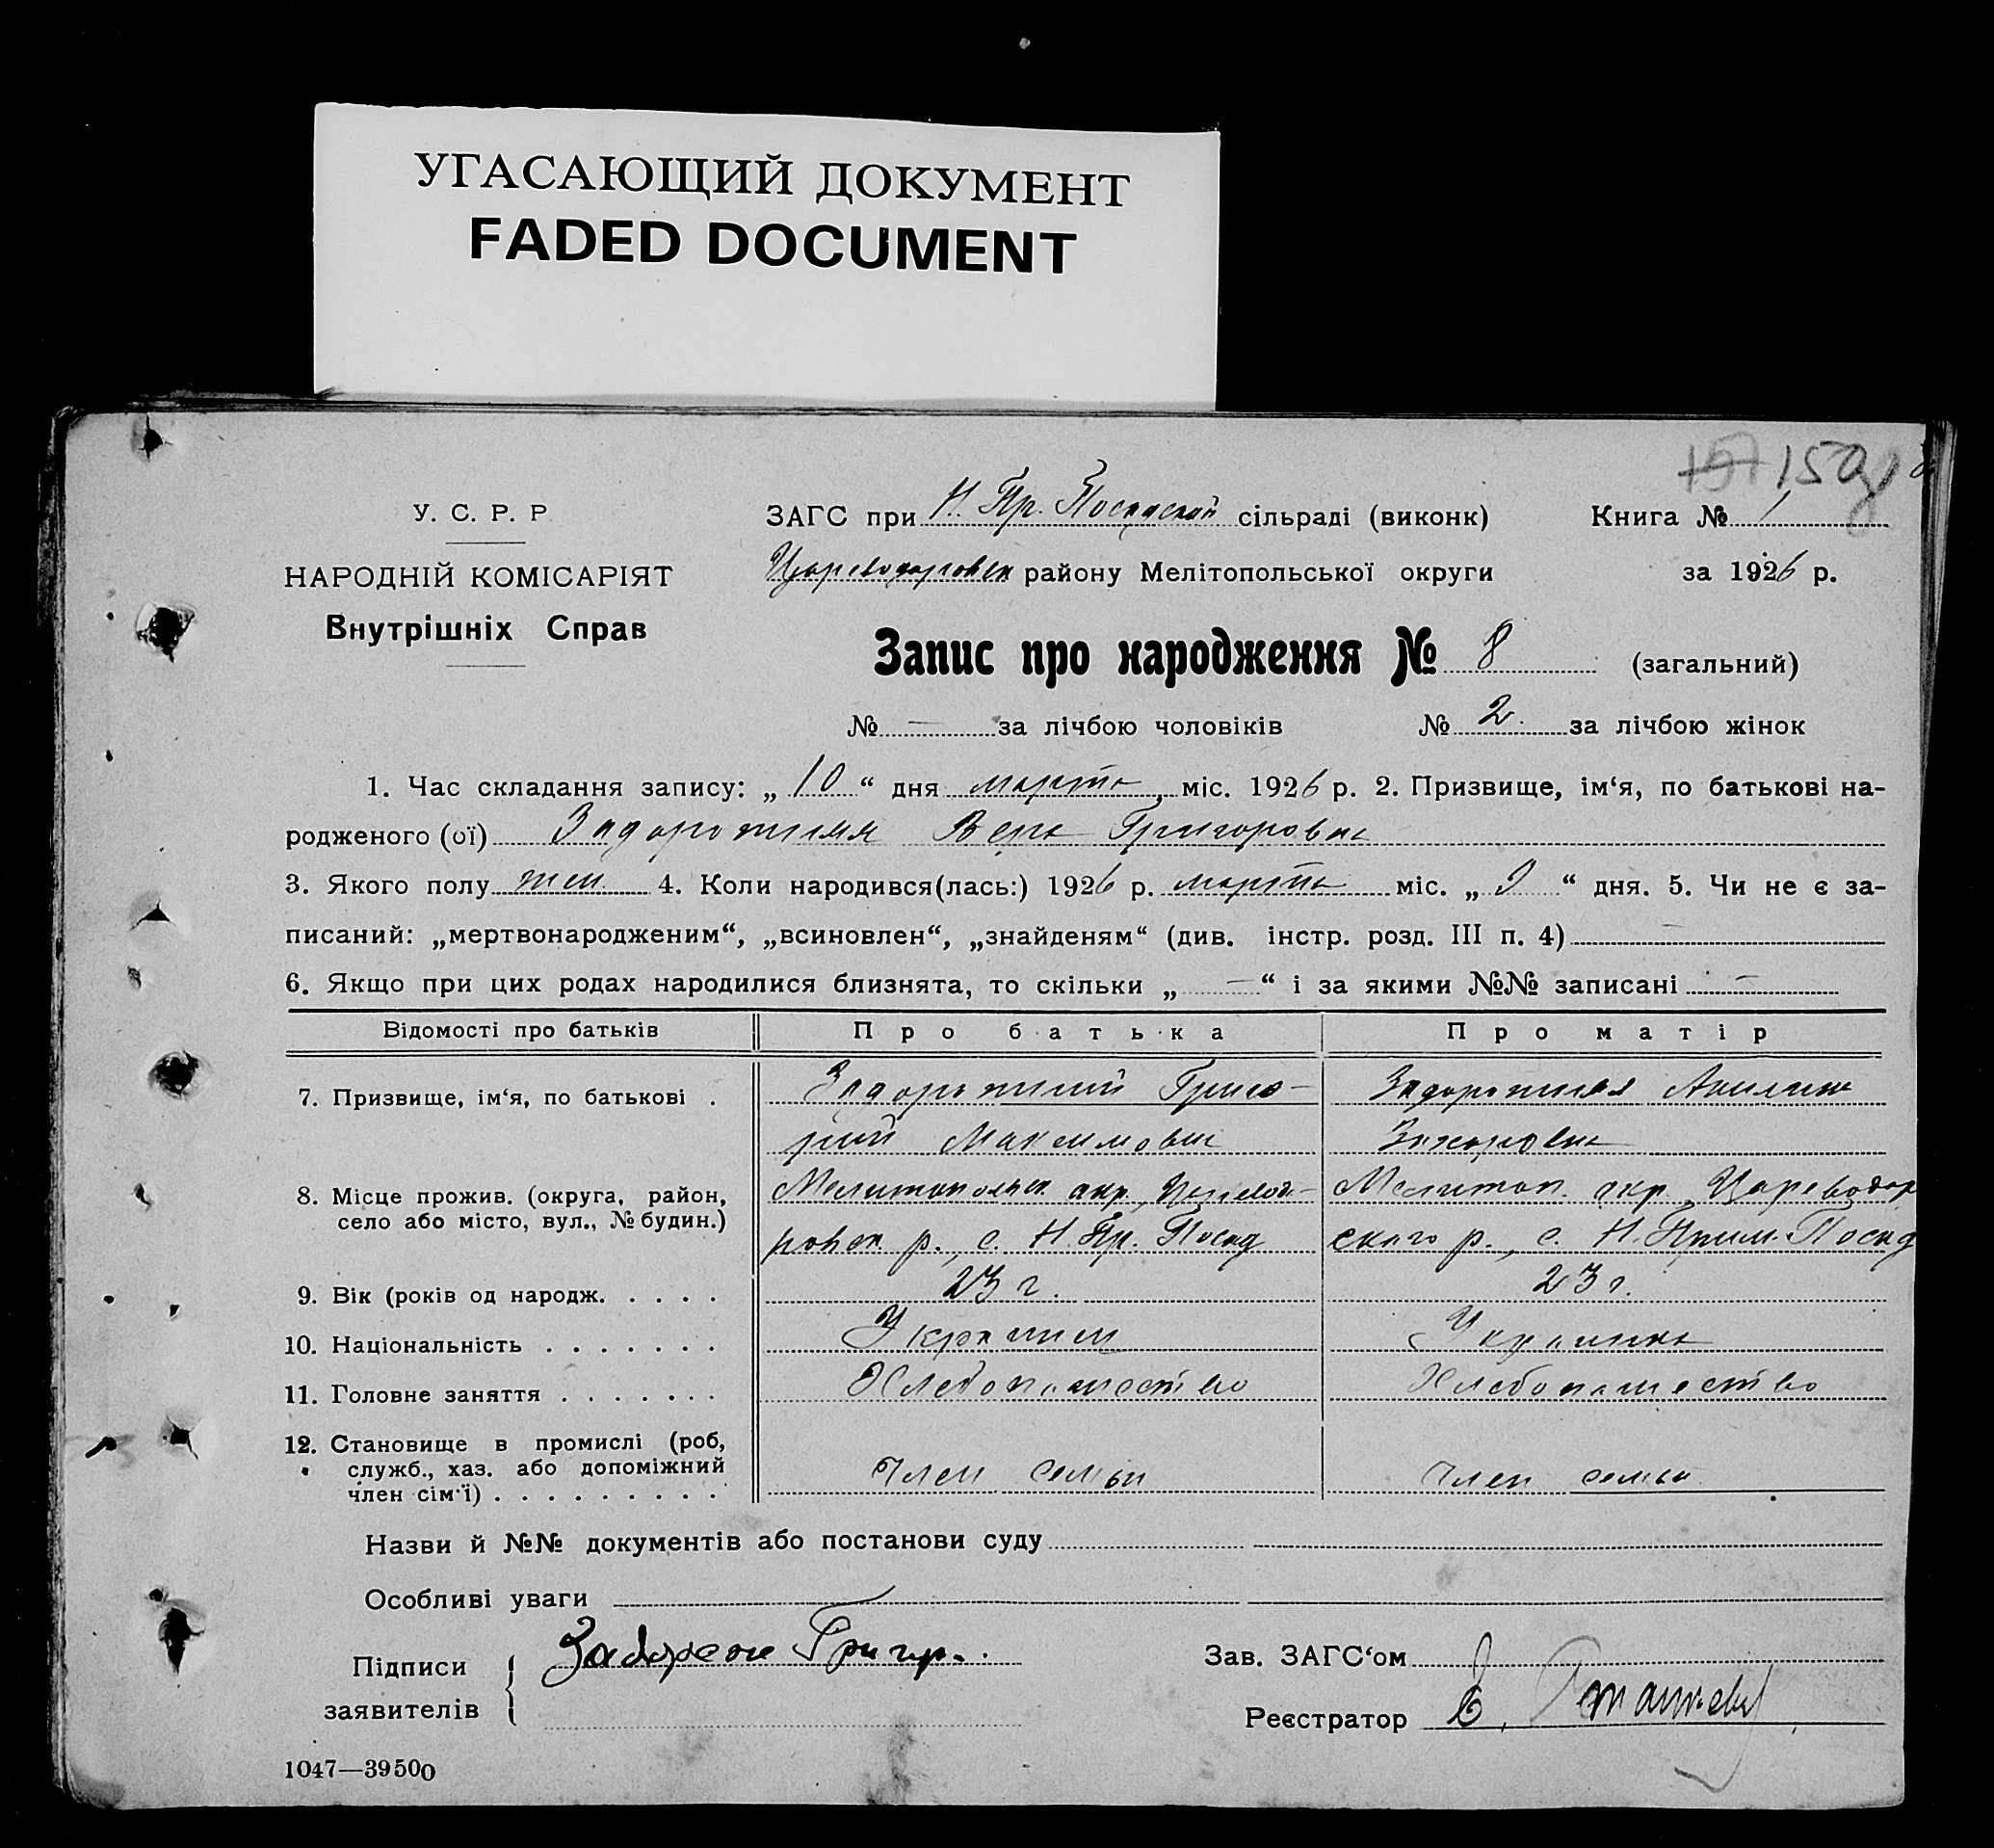 УГАСАЮЩИЙ ДОКУМЕНТ
FADED DOCUMENT
150
У. С. Р. Р
ЗАГС при Н. Пр. Посадской сільраді (виконк)
Книга № 1
НАРОДНІЙ КОМІСАРІЯТ
Цареводаровск району Мелітопольської округи
за 1926 р.
Внутрішніх Справ
Запис про народження № 8 (загальний)
№ — за лічбою чоловіків № 2. за лічбою жінок
1. Час складання запису: „ 10 “ дня марта міс. 1926 р. 2. Призвище, ім‘я, по батькові на-
родженого (ої) Задорожняя Вера Григоровна
3. Якого полу жен. 4. Коли народився(лась:) 1926 р. марта міс. „ 9 “ дня. 5. Чи не є за-
писаний: „мертвонародженим“, „всиновлен“, „знайденям“ (див. інстр. розд. III п. 4) —
6. Якщо при цих родах народилися близнята, то скільки „ — “ і за якими №№ записані —
Відомості про батьків
Про батька
Про матір
7. Призвище, ім‘я, по батькові .
Задорожний Григо-
рий Максимович
Задорожняя Акилина
Захаровна
8. Місце прожив. (округа, район,
село або місто, вул., № будин.)
Мелитопольск. окр., Царевода-
ровск. р., с. Н. Пр. Посад
Мелитоп. окр., Цареводар
ского р., с. Н. Прим. Посад
9. Вік (років од народж. . . . .
23 г.
23 г.
10. Національність . . . . . . .
Украинец
Украинка
11. Головне заняття . . . . . . .
Хлебопашество
Хлебопашество
12. Становище в промислі (роб,
служб., хаз. або допоміжний
член сім‘ї) . . . . . . . . .
Член семьи
Член семьи
Назви й №№ документів або постанови суду
Особливі уваги
Підписи
заявителів
Григор.
Зав. ЗАГС‘ом
Реєстратор
1047—39500